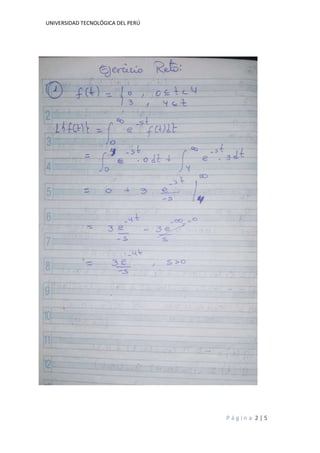 UNIVERSIDAD TECNOLÓGICA DEL PERÚ
Ejercicio Reto:
1 f(t) = { 0 , 0≤t<4
3 , 4≤t
L{f(t)} = ∫₀^∞ e^-st f(t)dt
= ∫₀^4 e^-st · 0 dt + ∫₄^∞ e^-st · 3 dt
= 0 + 3 e^-st / -s |₄^∞
= 3e^-4t / -s - 3e^-∞ / s → 0
= 3e^-4t / -s , s>0
2
3
4
5
6
7
8
9
10
11
12
Página 2 | 5